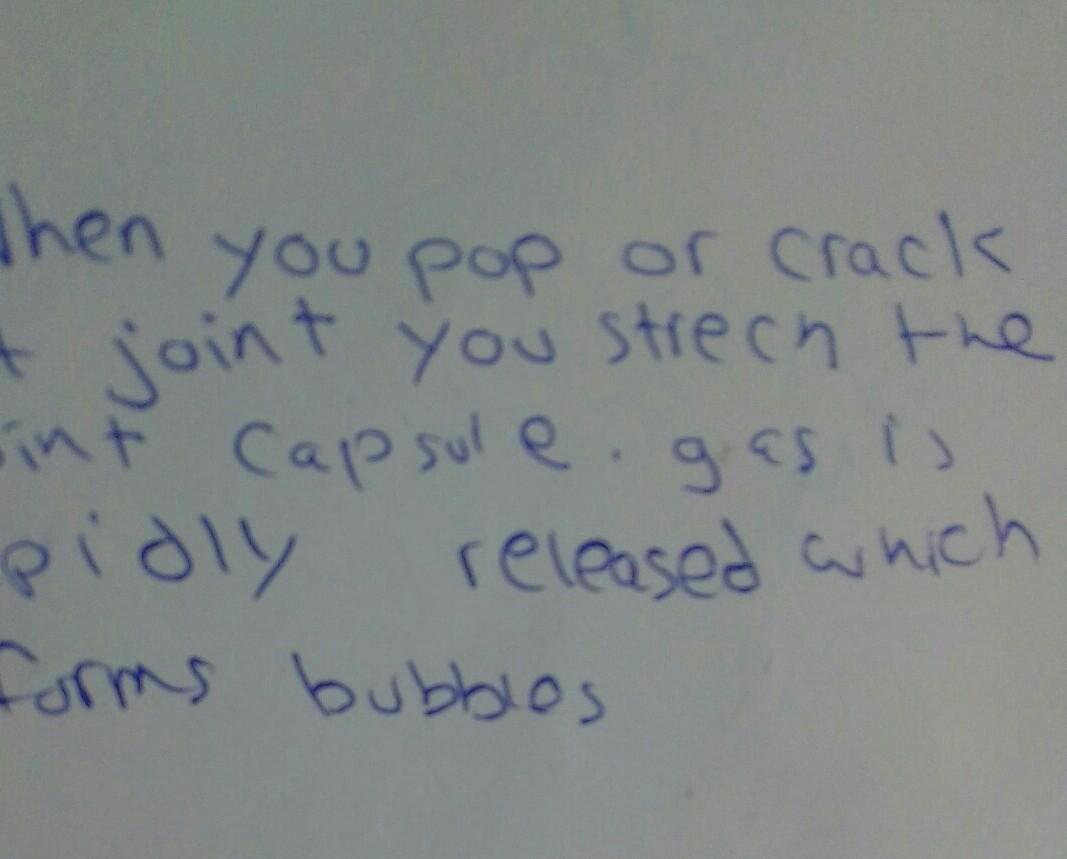 hen you pop or crack
t joint you strech the
int capsule. gas is
pidly released which
forms bubbles